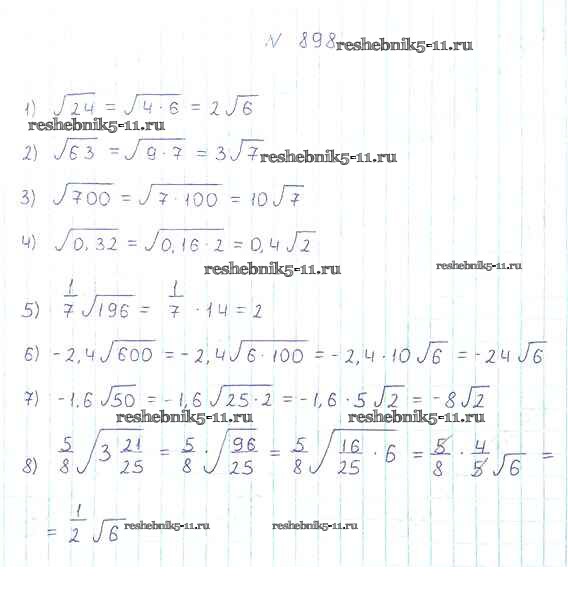 № 898 reshebnik5-11.ru
1) √24 = √(4·6) = 2√6
reshebnik5-11.ru
2) √63 = √(9·7) = 3√7 reshebnik5-11.ru
3) √700 = √(7·100) = 10√7
4) √0,32 = √(0,16·2) = 0,4√2
reshebnik5-11.ru reshebnik5-11.ru
5) 1/7 √196 = 1/7 · 14 = 2
6) -2,4√600 = -2,4√(6·100) = -2,4·10√6 = -24√6
7) -1,6√50 = -1,6√(25·2) = -1,6·5√2 = -8√2
reshebnik5-11.ru reshebnik5-11.ru
8) 5/8 √(3 21/25) = 5/8 · √(96/25) = 5/8 √(16/25 · 6) = 5/8 · 4/5 √6 =
= 1/2 √6 reshebnik5-11.ru reshebnik5-11.ru